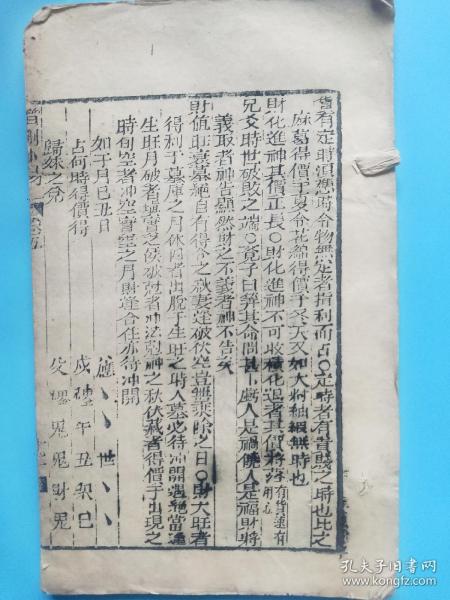 貨有定時須憑時令物無定者指利而占○定時者有貴賤之時也比之
麻葛得價于夏令花綿得價于冬天又如大綱紬緞無時也
財化進神其價正長○財化進神不可收橫化退者其價將落有貨速有
兄爻時世破敗之端○覺子曰
人是福財將
義取者神告顯然財之不義者神不告矣
財值旺衰墓絕自有得令之秋妻逢破伏空豈無乘除之日○財大旺者
得利于墓庫之月休囚者出脫于生旺之時入墓必待冲開遇絕當逢
生旺月破者填實之候被尅者冲法尅神之秋伏藏者得價于出現之
時旬空者冲空實空之月財逢合住亦待冲開
如子月己丑日
占何時得價得
歸妹之兌
應、、世、、
戌 午丑卯巳
父 兄鬼財兄
孔夫子旧书网